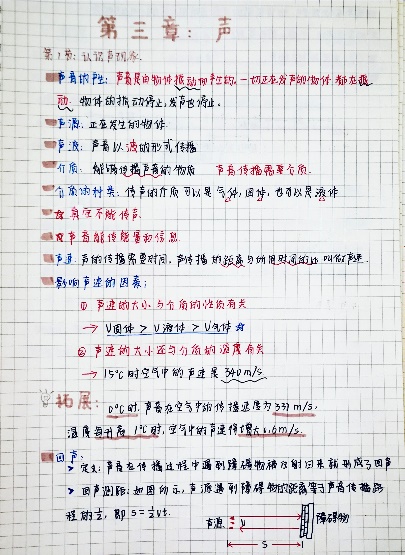 第三章：声
第1节：认识声现象
声音的产生：声音是由物体振动而产生的。一切正在发声的物体都在振
动。物体的振动停止，发声也停止。
声源：正在发生的物体
声波：声音以波的形式传播
介质：能够传播声音的物质 声音传播需要介质。
介质的种类：传声的介质可以是气体，固体，也可以是液体
☆真空不能传声
☆声音能传能量和信息
声速：声的传播需要时间，声传播的距离与所用时间的比叫做声速。
影响声速的因素：
① 声速的大小与介质的性质有关
→ V固体 > V液体 > V气体 ☆
② 声速的大小还与介质的温度有关
→ 15℃时空气中的声速是340m/s
拓展：0℃时，声音在空气中的传播速度为331m/s，
温度每升高1℃时，空气中的声速将增大0.6m/s。
回声：
➢ 定义：声音在传播过程中遇到障碍物被反射回来就形成了回声
➢ 回声测距：如图所示，声源遇到障碍物的距离等于声音传播路
程的½，即 S=½vt.
声源 障碍物
S